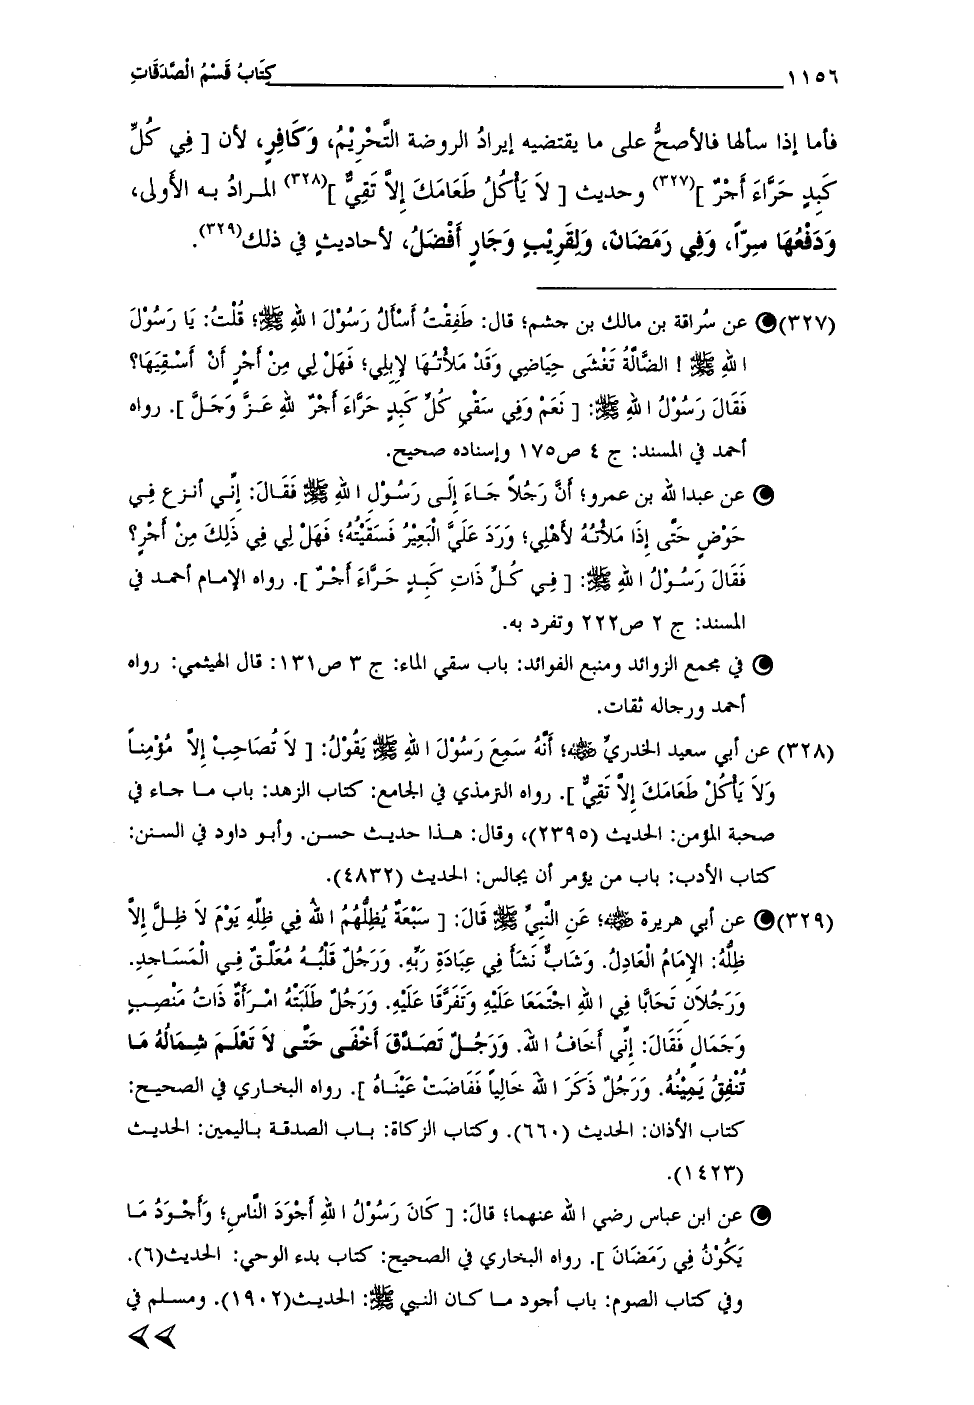 ١١٥٦ كِتَابُ قَسْمُ الْصَّدَقَاتِ
فأما إذا سألها فالأصحُّ على ما يقتضيه إيرادُ الروضة التَّحْرِيْمُ، وَكَافِرٍ، لأن [ فِي كُلِّ
كَبِدٍ حَرَّاءَ أَجْرٌ ](٣٢٧) وحديث [ لاَ يَأْكُلُ طَعَامَكَ إِلاَّ تَقِيٌّ ](٣٢٨) المرادُ به الأَولى،
وَدَفْعُهَا سِرّاً، وَفِي رَمَضَانَ، وَلِقَرِيْبٍ وَجَارٍ أَفْضَلُ، لأحاديثٍ في ذلك(٣٢٩).
(٣٢٧) عن سُراقة بن مالك بن جشم؛ قال: طَفِقْتُ أَسْأَلُ رَسُوْلَ اللهِ ﷺ؛ قُلْتُ: يَا رَسُوْلَ
اللهِ ﷺ ! الضَّالَّةُ تَغْشَى حِيَاضِي وَقَدْ مَلأْتُهَا لإِبِلِي؛ فَهَلْ لِي مِنْ أَجْرٍ أَنْ أَسْقِيَهَا؟
فَقَالَ رَسُوْلُ اللهِ ﷺ: [ نَعَمْ وَفِي سَقْيِ كُلِّ كَبِدٍ حَرَّاءَ أَجْرٌ لِلهِ عَزَّ وَجَلَّ ]. رواه
أحمد في المسند: ج ٤ ص١٧٥ وإسناده صحيح.
عن عبدالله بن عمرو؛ أَنَّ رَجُلاً جَاءَ إِلَى رَسُوْلِ اللهِ ﷺ فَقَالَ: إِنِّي أنزع فِي
حَوْضٍ حَتَّى إِذَا مَلأْتُهُ لأَهْلِي؛ وَرَدَ عَلَيَّ الْبَعِيْرُ فَسَقَيْتُهُ؛ فَهَلْ لِي فِي ذَلِكَ مِنْ أَجْرٍ؟
فَقَالَ رَسُوْلُ اللهِ ﷺ: [ فِي كُلِّ ذَاتِ كَبِدٍ حَرَّاءَ أَجْرٌ ]. رواه الإمام أحمد في
المسند: ج ٢ ص٢٢٢ وتفرد به.
في مجمع الزوائد ومنبع الفوائد: باب سقي الماء: ج ٣ ص١٣١: قال الهيثمي: رواه
أحمد ورجاله ثقات.
(٣٢٨) عن أبي سعيد الخدريِّ ﷺ؛ أَنَّهُ سَمِعَ رَسُوْلَ اللهِ ﷺ يَقُوْلُ: [ لاَ تُصَاحِبْ إِلاَّ مُؤْمِناً
وَلاَ يَأْكُلْ طَعَامَكَ إِلاَّ تَقِيٌّ ]. رواه الترمذي في الجامع: كتاب الزهد: باب ما جاء في
صحبة المؤمن: الحديث (٢٣٩٥)، وقال: هذا حديث حسن. وأبو داود في السنن:
كتاب الأدب: باب من يؤمر أن يجالس: الحديث (٤٨٣٢).
(٣٢٩) عن أبي هريرة ﷺ؛ عَنِ النَّبِيِّ ﷺ قَالَ: [ سَبْعَةٌ يُظِلُّهُمُ اللهُ فِي ظِلِّهِ يَوْمَ لاَ ظِلَّ إِلاَّ
ظِلُّهُ: الإِمَامُ الْعَادِلُ. وَشَابٌّ نَشَأَ فِي عِبَادَةِ رَبِّهِ. وَرَجُلٌ قَلْبُهُ مُعَلَّقٌ فِي الْمَسَاجِدِ.
وَرَجُلاَنِ تَحَابَّا فِي اللهِ اجْتَمَعَا عَلَيْهِ وَتَفَرَّقَا عَلَيْهِ. وَرَجُلٌ طَلَبَتْهُ امْرَأَةٌ ذَاتُ مَنْصِبٍ
وَجَمَالٍ فَقَالَ: إِنِّي أَخَافُ اللهَ. وَرَجُلٌ تَصَدَّقَ أَخْفَى حَتَّى لاَ تَعْلَمَ شِمَالُهُ مَا
تُنْفِقُ يَمِيْنُهُ. وَرَجُلٌ ذَكَرَ اللهَ خَالِياً فَفَاضَتْ عَيْنَاهُ ]. رواه البخاري في الصحيح:
كتاب الأذان: الحديث (٦٦٠). وكتاب الزكاة: باب الصدقة باليمين: الحديث
(١٤٢٣).
عن ابن عباس رضي الله عنهما؛ قالَ: [ كَانَ رَسُوْلُ اللهِ أَجْوَدَ النَّاسِ؛ وَأَجْوَدُ مَا
يَكُوْنُ فِي رَمَضَانَ ]. رواه البخاري في الصحيح: كتاب بدء الوحي: الحديث(٦).
وفي كتاب الصوم: باب أجود ما كان النبي ﷺ: الحديث(١٩٠٢). ومسلم في